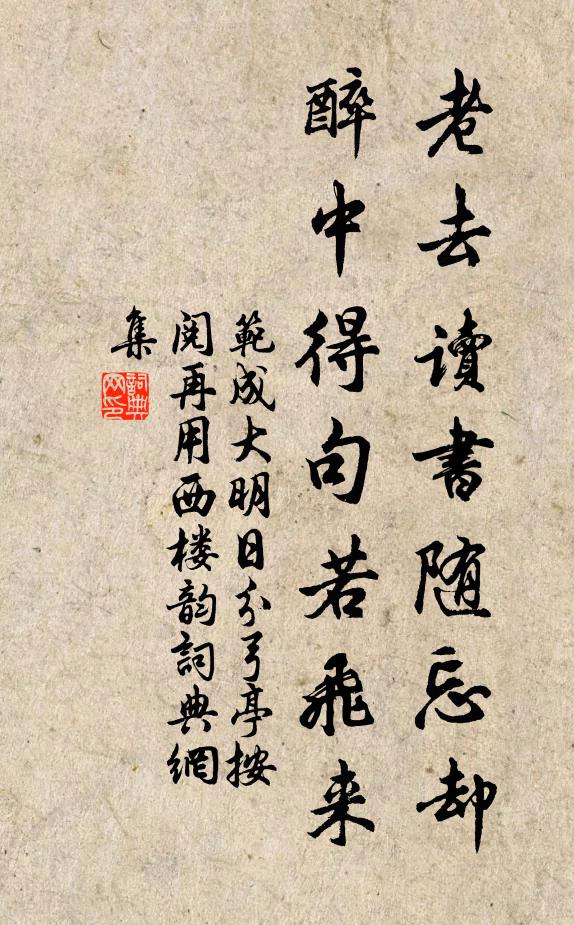 老去讀書随忘却
醉中得句若飛来
範成大明日分弓亭按
閱再用西楼韵詞典網
集
詞典
网印